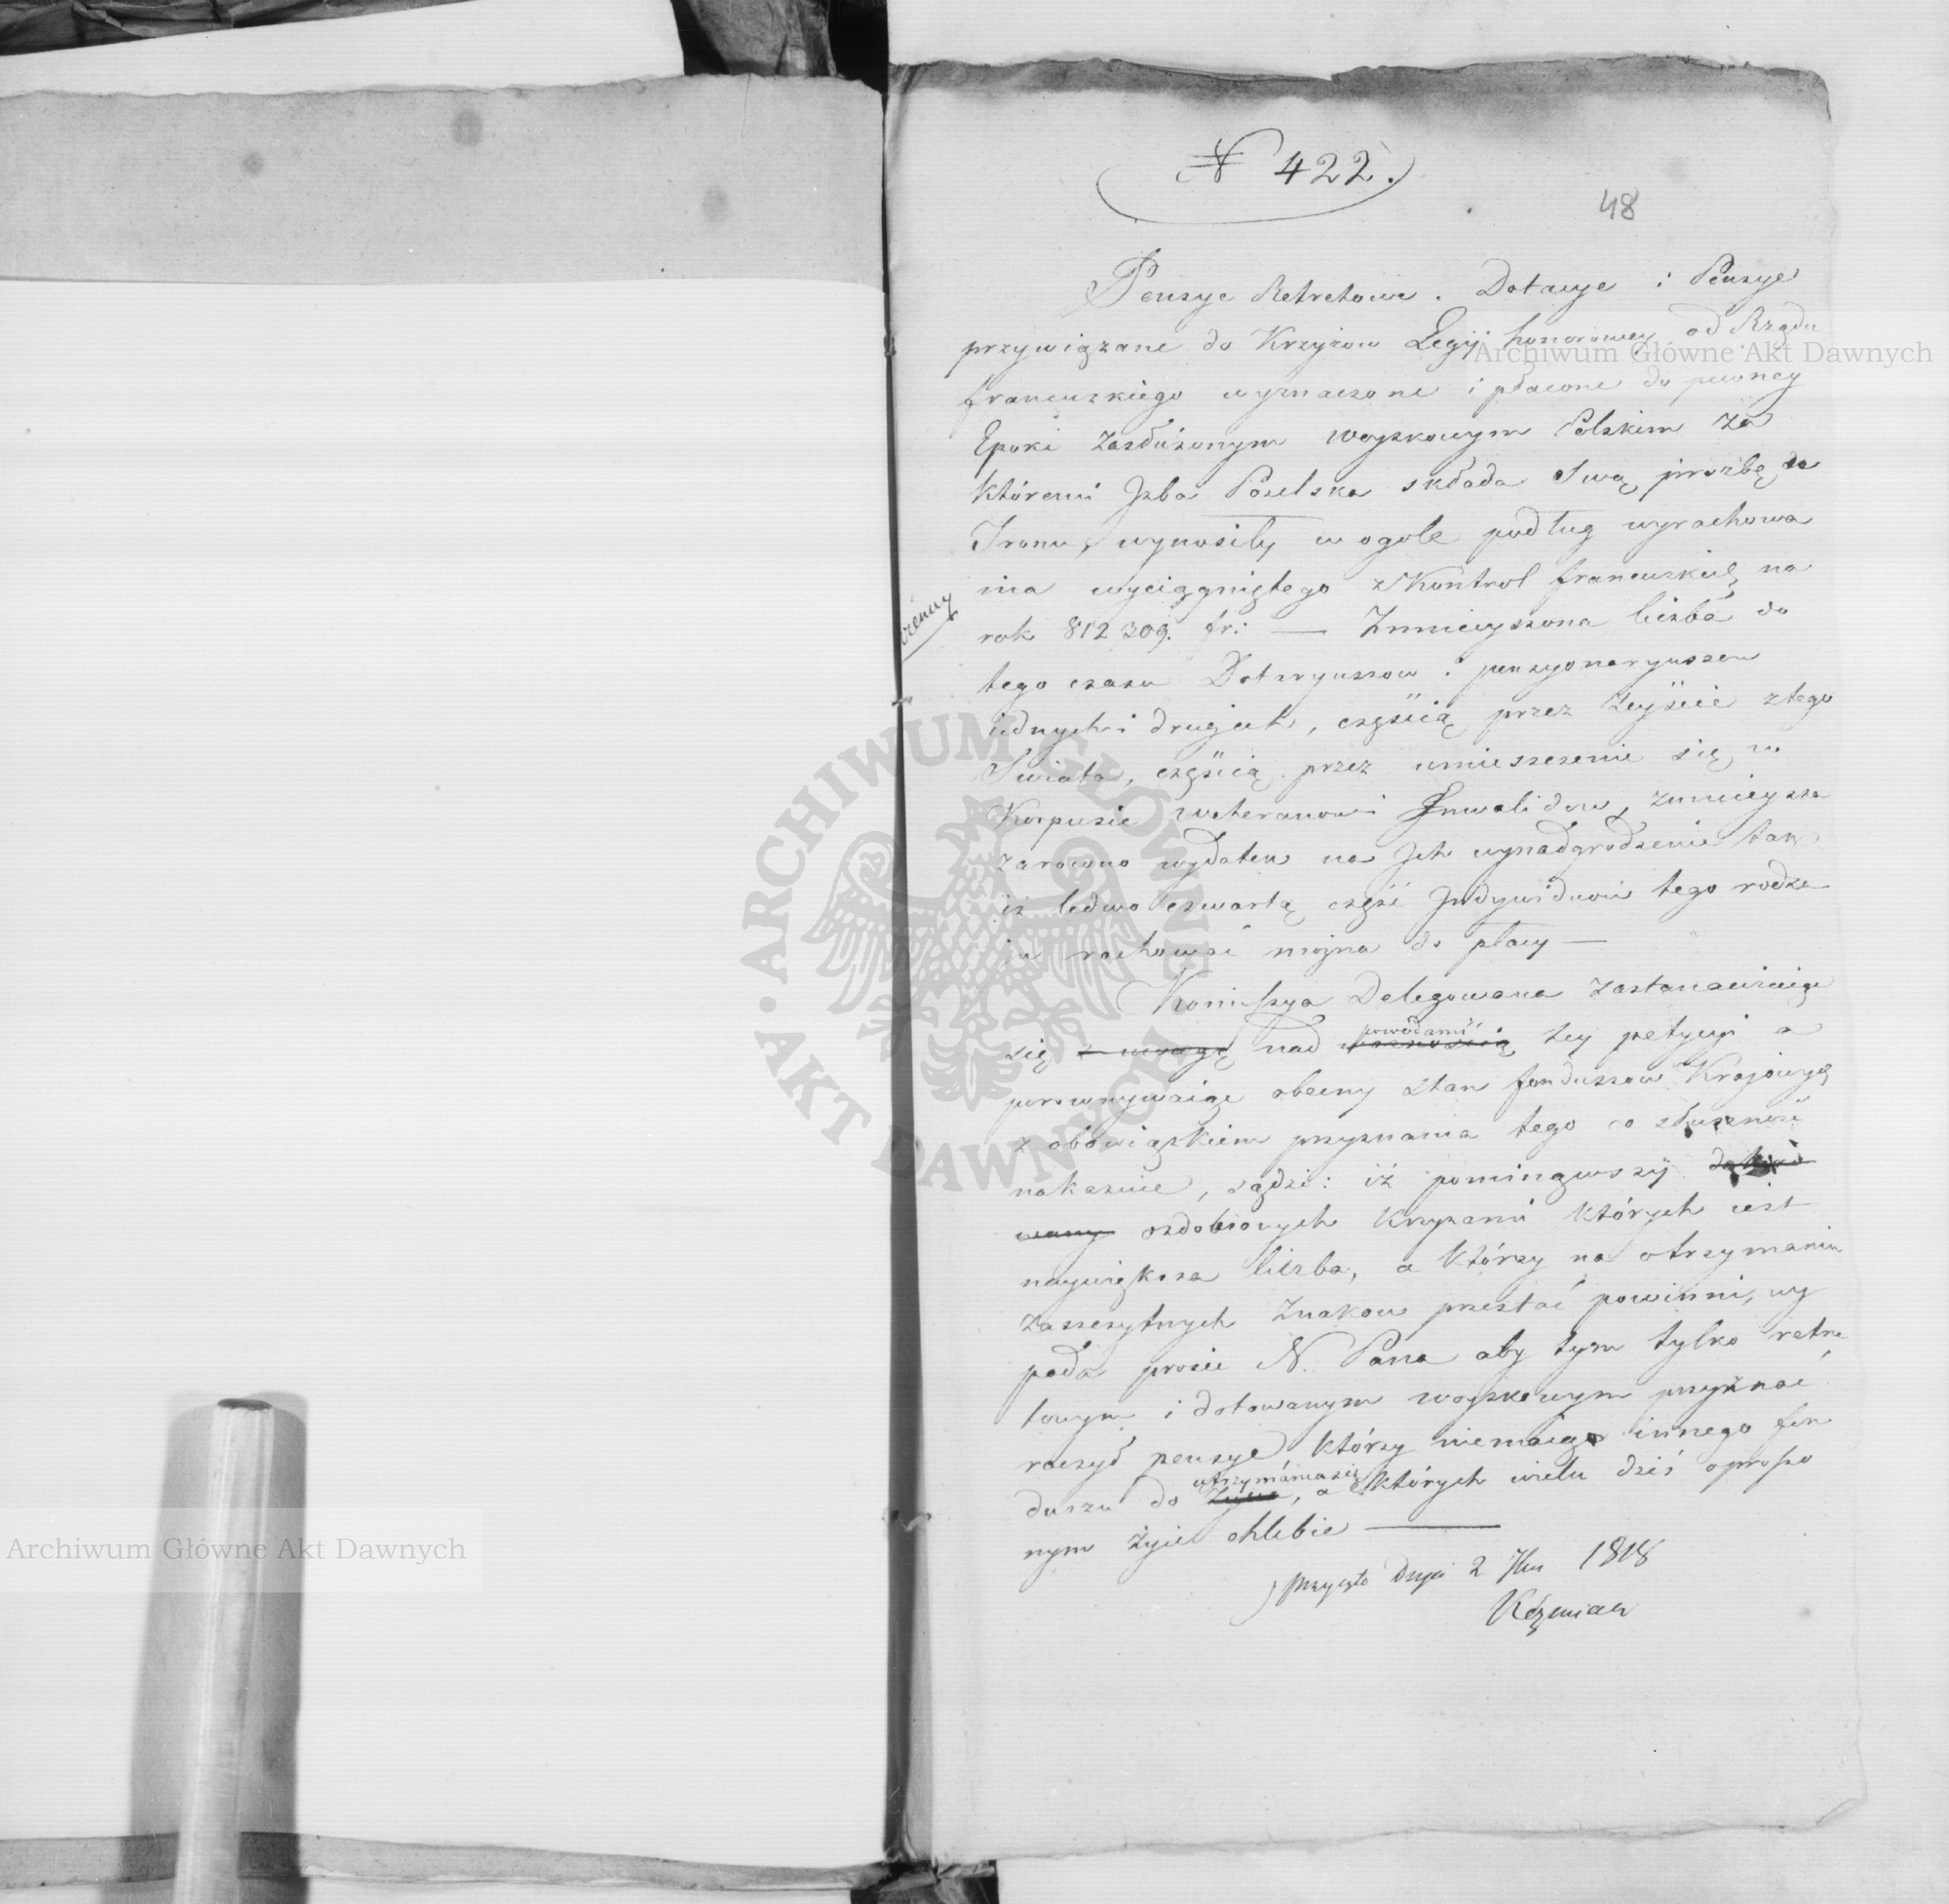 N 422.
48
Pensye Retretowe. Dotacye i Pensye
przywiązane do Krzyżow Legij honorowey od Rządu
francuzkiego wyznaczone i płacone do pewney
Epoki zasłużonym woyskowym Polskim za
któremi Jzba Poselska składa Swą prozbę do
Tronu, wynosiły w ogole podług wyrachowa
nia wyciągniętego z Kontrol francuskich na
rok 812 309. fr: — Zmnieyszona liczba do
tego czasu Dotaryuszow i pensyonaryuszow
iednych i drugich, częścią przez zeyście z tego
Swiata, częścią przez umieszczenie się w
Korpusie weteranow i Jnwalidow, zmnieysza
zarowno wydatek na Jch wynadgrodzenie tak
iż ledwo czwartą część Jndywiduow tego rodza
iu rachować można do płacy —
Komissya Delegowana zastanawiaiąc
się z uwagą nad powodami tey petycyi a
porownywaiąc obecny stan funduszow Krajowych
z obowiązkiem przyznania tego co słuszność
nakazuie, sądzi: iż pominąwszy
ozdobionych Krzyżami których iest
naywiększa liczba, a którzy na otrzymaniu
zaszczytnych znakow przestać powinni, wy
pada prosić N. Pana aby tym tylko retre
towym i dotowanym woyskowym przyznać
raczył pensye którzy niemaią innego fun
duszu do utrzymania się, a których wielu dziś o proszo
nym żyie chlebie —
przyięto Dnia 2 1818
Koźmian
Archiwum Główne Akt Dawnych
Archiwum Główne Akt Dawnych
ARCHIWUM GŁÓWNE AKT DAWNYCH